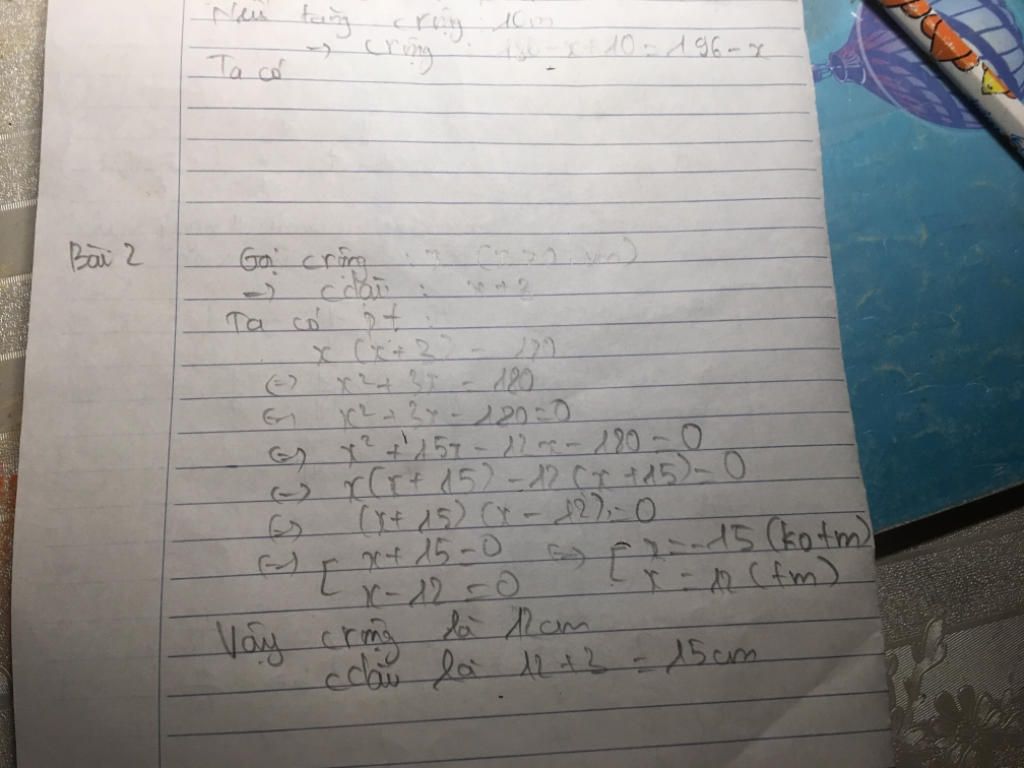 Nếu tăng crộng 10m
→ crộng : 186 - x + 10 = 196 - x
Ta có
Bài 2 Gọi crộng : x
→ cdài : x + 3
Ta có pt :
x (x + 3) = 180
<=> x² + 3x = 180
<=> x² + 3x - 180 = 0
<=> x² + 15x - 12x - 180 = 0
<=> x(x + 15) - 12(x + 15) = 0
<=> (x + 15) (x - 12) = 0
<=> [ x + 15 = 0 <=> [ x = -15 (kotm)
x - 12 = 0 x = 12 (tm)
Vậy crộng là 12cm
cdài là 12 + 3 = 15cm